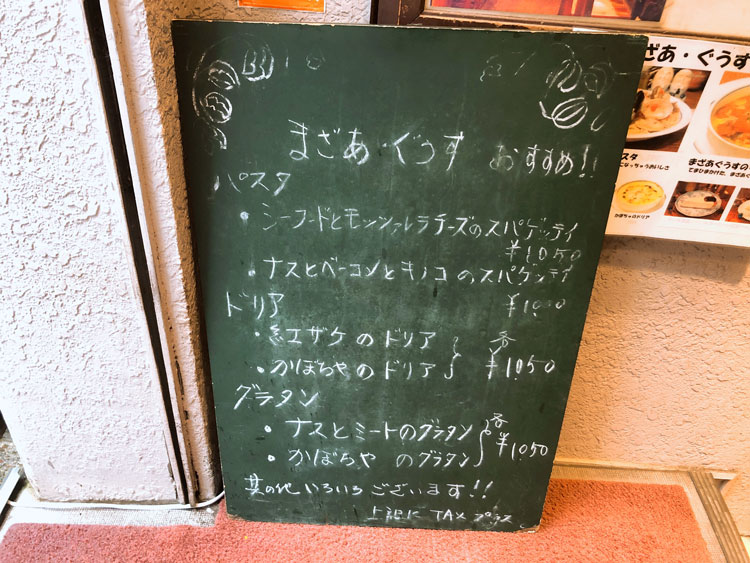 まざあ・ぐうす おすすめ!!
パスタ
・シーフードとモッツァレラチーズのスパゲッティ
¥1050
・ナスとベーコンとキノコのスパゲッティ
¥1000
ドリア
・紅ザケのドリア
・かぼちゃのドリア
各
¥1050
グラタン
・ナスとミートのグラタン
・かぼちゃ のグラタン
各
¥1050
其の他いろいろございます!!
上記に TAX プラス
まざあ・ぐうす
スタ
まざあぐうすの
かぼちゃのドリア